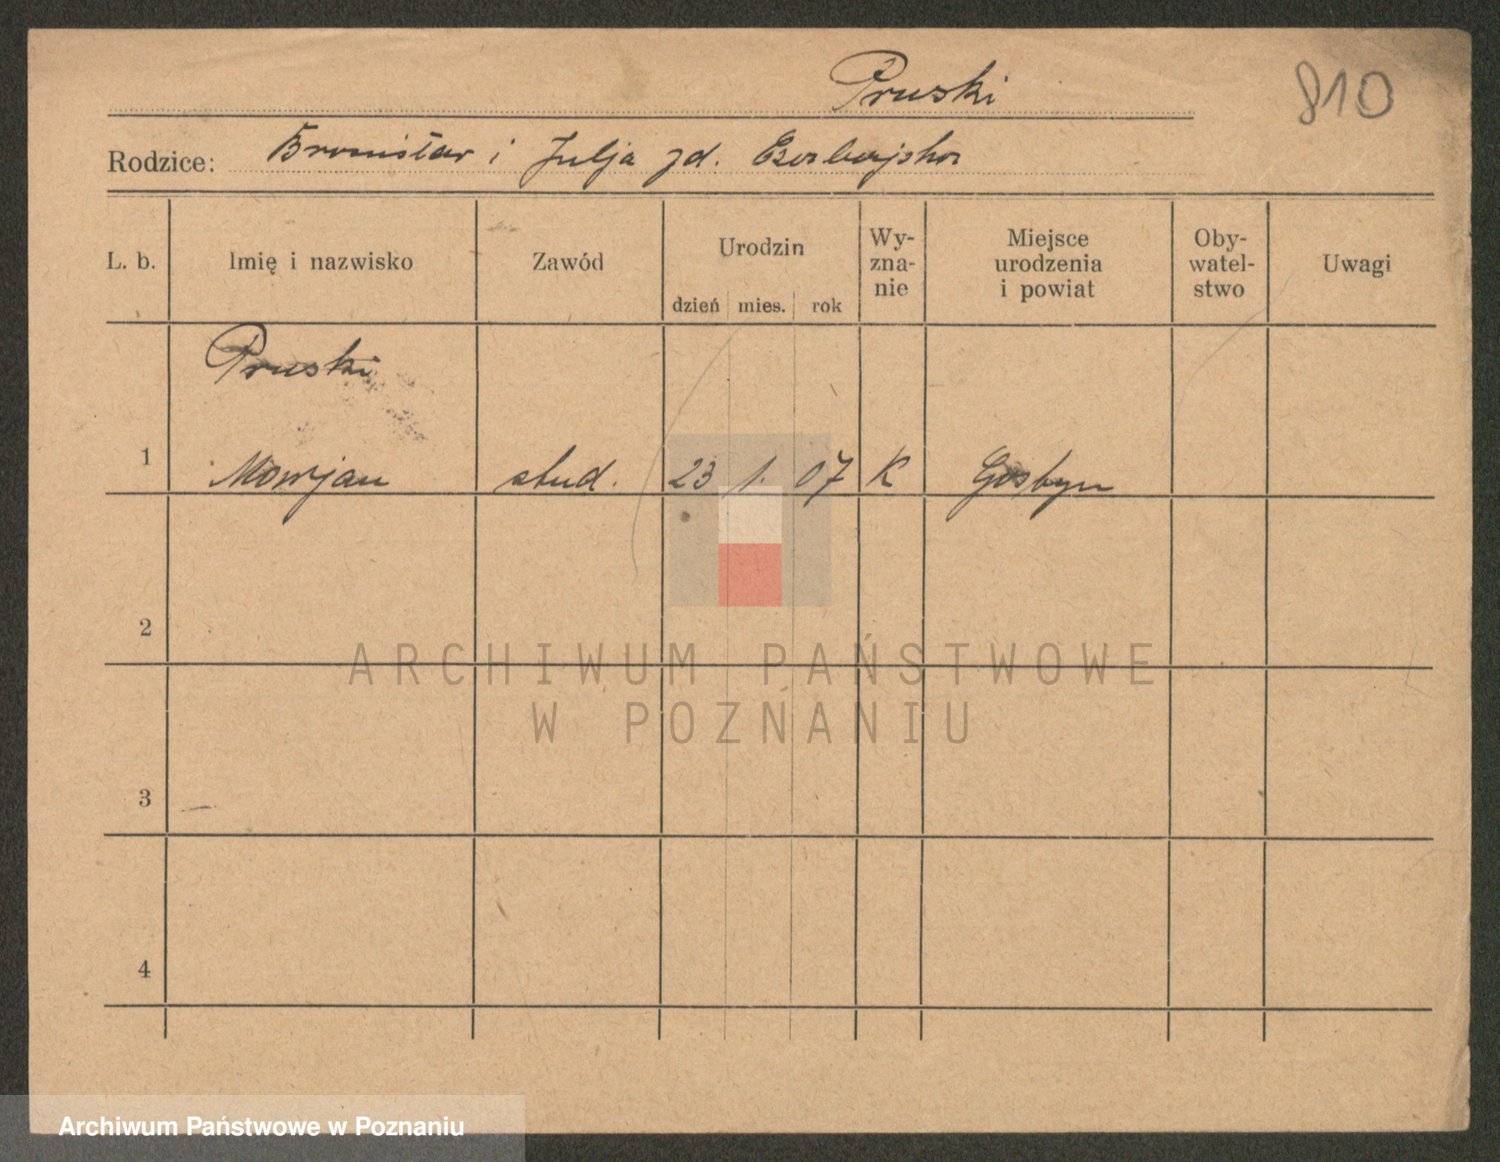 Pruski
810
Rodzice: Bronisław i Julja zd.
L. b. Imię i nazwisko Zawód Urodzin dzień mies. rok Wy-zna-nie Miejsce urodzenia i powiat Oby-watel-stwo Uwagi
Pruski
1 Marjan stud. 23 1. 07 K Gostyń
2
ARCHIWUM PAŃSTWOWE
W POZNANIU
3
4
Archiwum Państwowe w Poznaniu